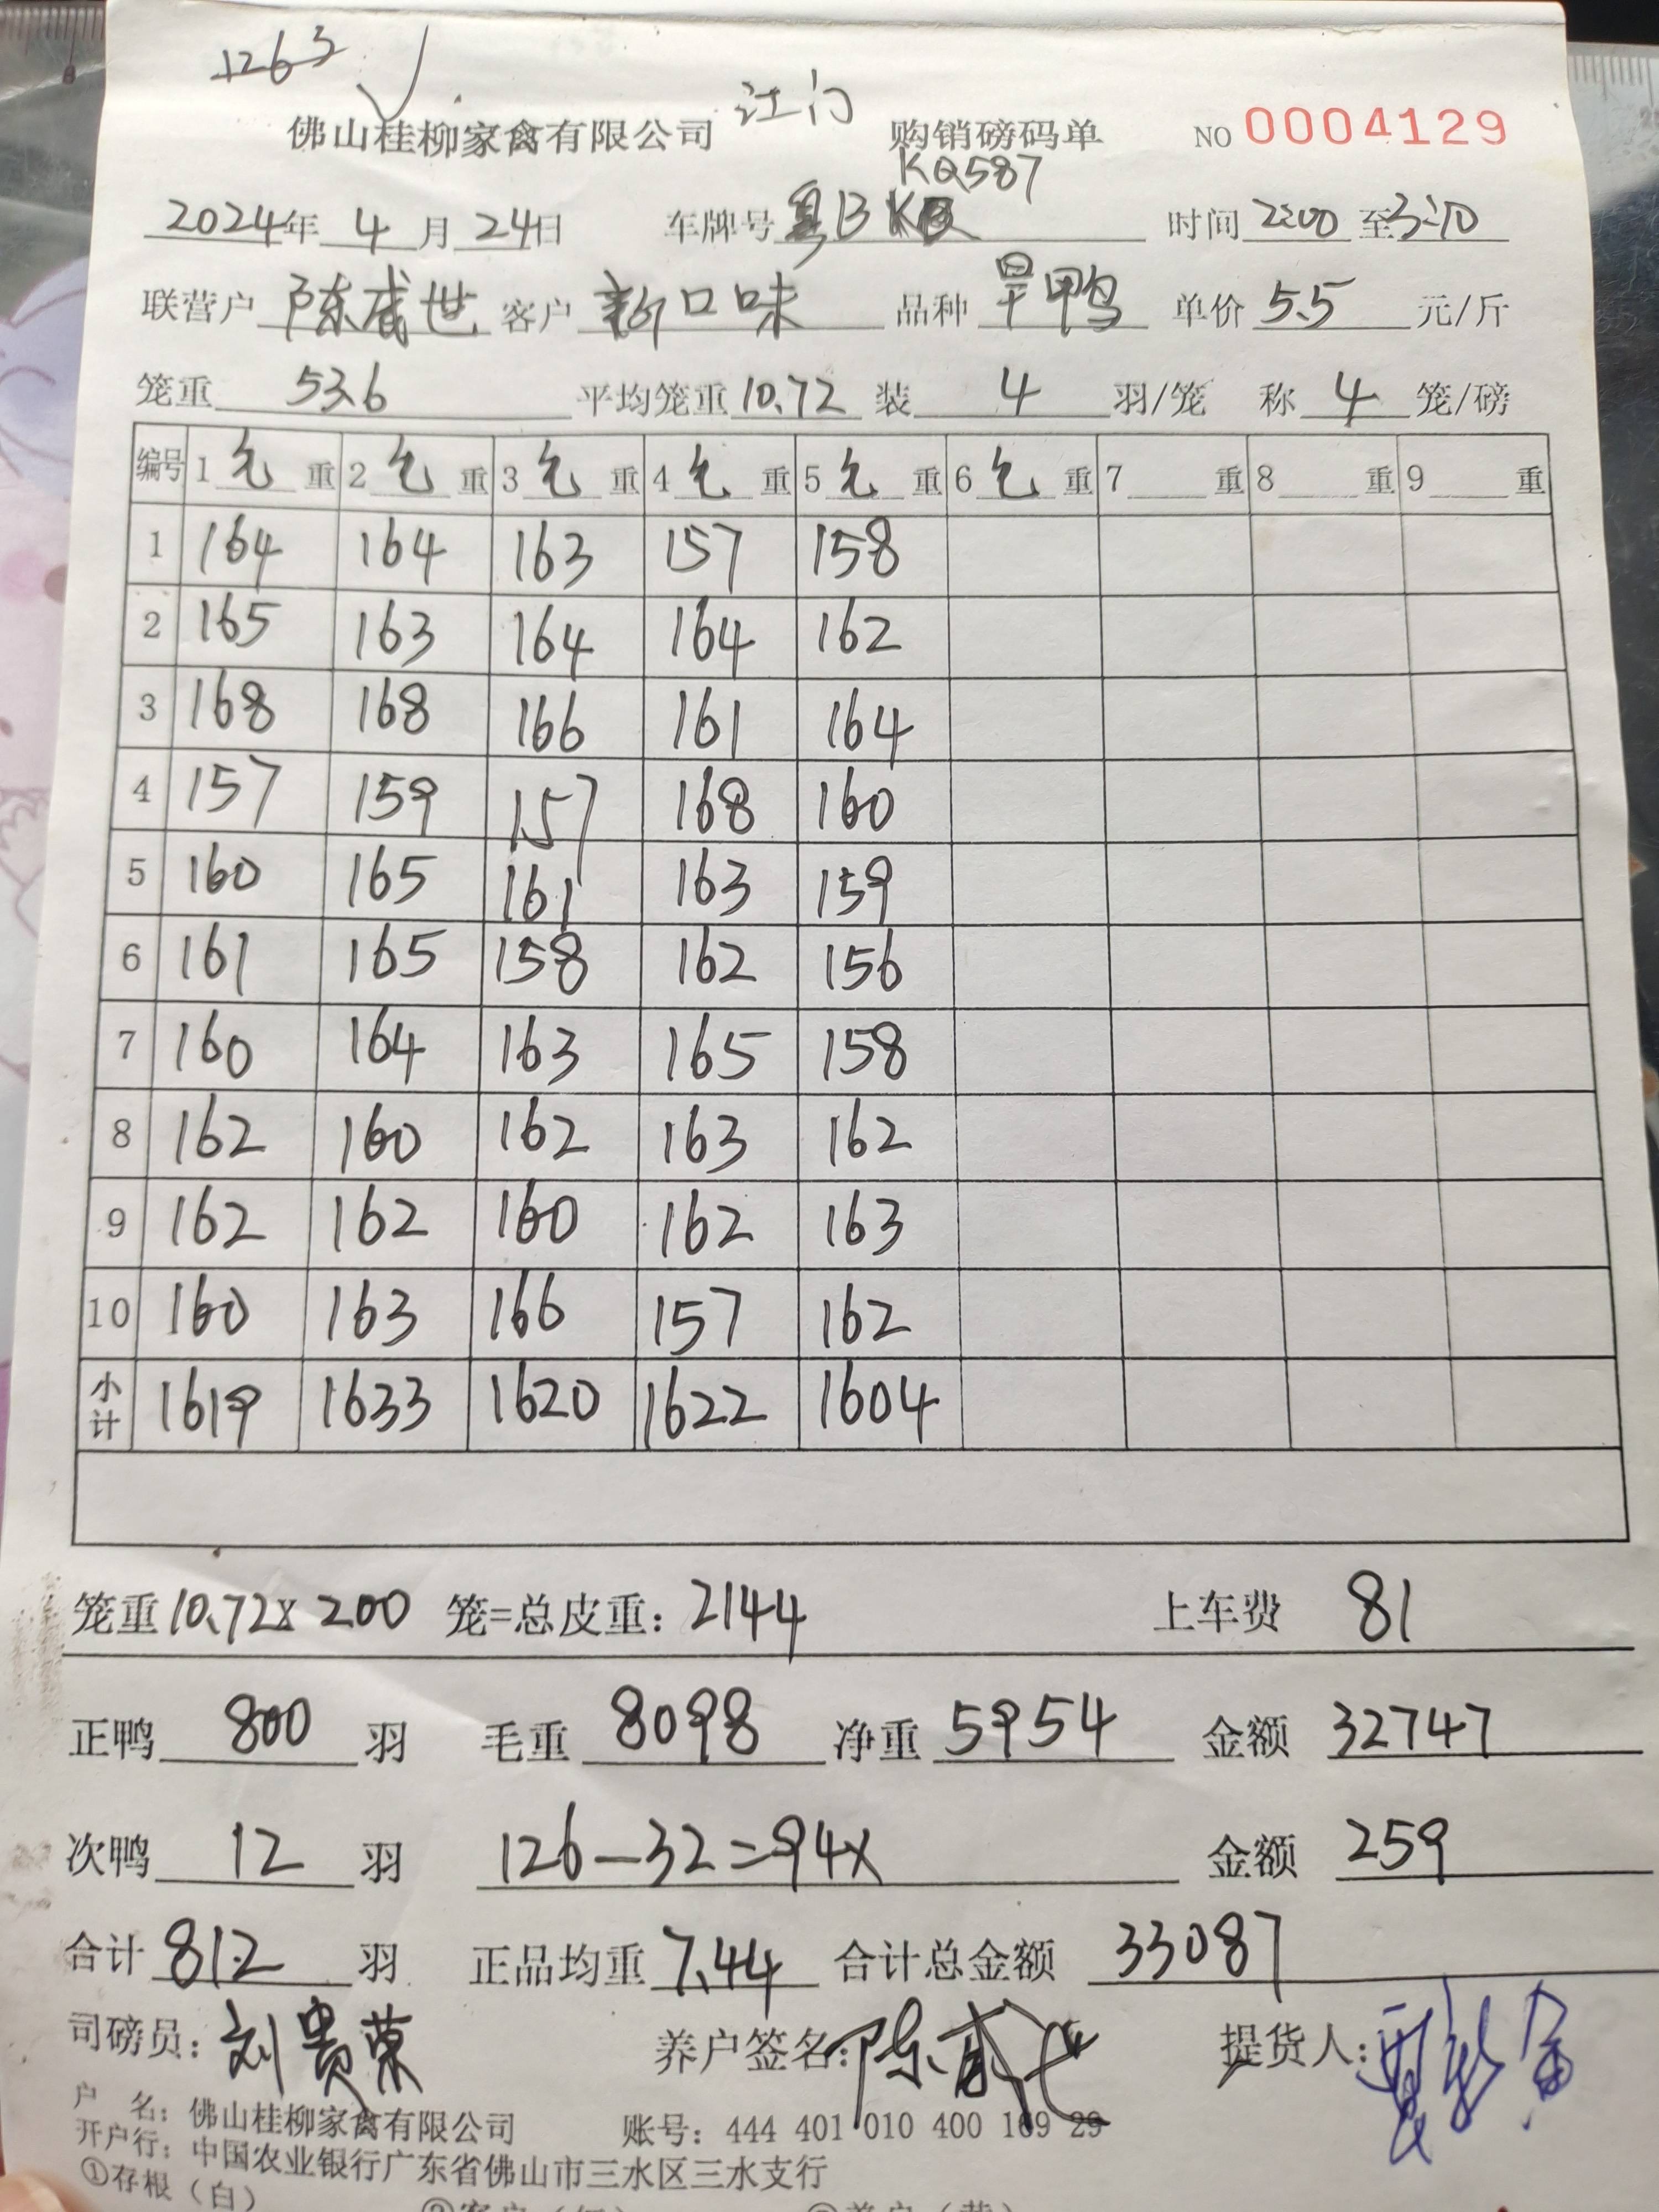 1263
江门
佛山桂柳家禽有限公司 购销磅码单 NO 0004129
KQ587
2024年 4 月 24日 车牌号 粤B 时间 2:00 至 3:10
联营户 陈威世 客户 新口味 品种 旱鸭 单价 5.5 元/斤
笼重 53.6 平均笼重 10.72 装 4 羽/笼 称 4 笼/磅
编号 1 毛 重 2 毛 重 3 毛 重 4 毛 重 5 毛 重 6 毛 重 7 重 8 重 9 重
1 164 164 163 157 158
2 165 163 164 164 162
3 168 168 166 161 164
4 157 159 157 168 160
5 160 165 161 163 159
6 161 165 158 162 156
7 160 164 163 165 158
8 162 160 162 163 162
9 162 162 160 162 163
10 160 163 166 157 162
小计 1619 1633 1620 1622 1604
笼重 10.72 x 200 笼=总皮重: 2144 上车费 81
正鸭 800 羽 毛重 8098 净重 5954 金额 32747
次鸭 12 羽 126-32=94x 金额 259
合计 812 羽 正品均重 7.44 合计总金额 33087
司磅员: 刘贵荣 养户签名: 陈威世 提货人:
户 名: 佛山桂柳家禽有限公司 账号: 444 401 010 400 169 29
开户行: 中国农业银行广东省佛山市三水区三水支行
①存根(白)